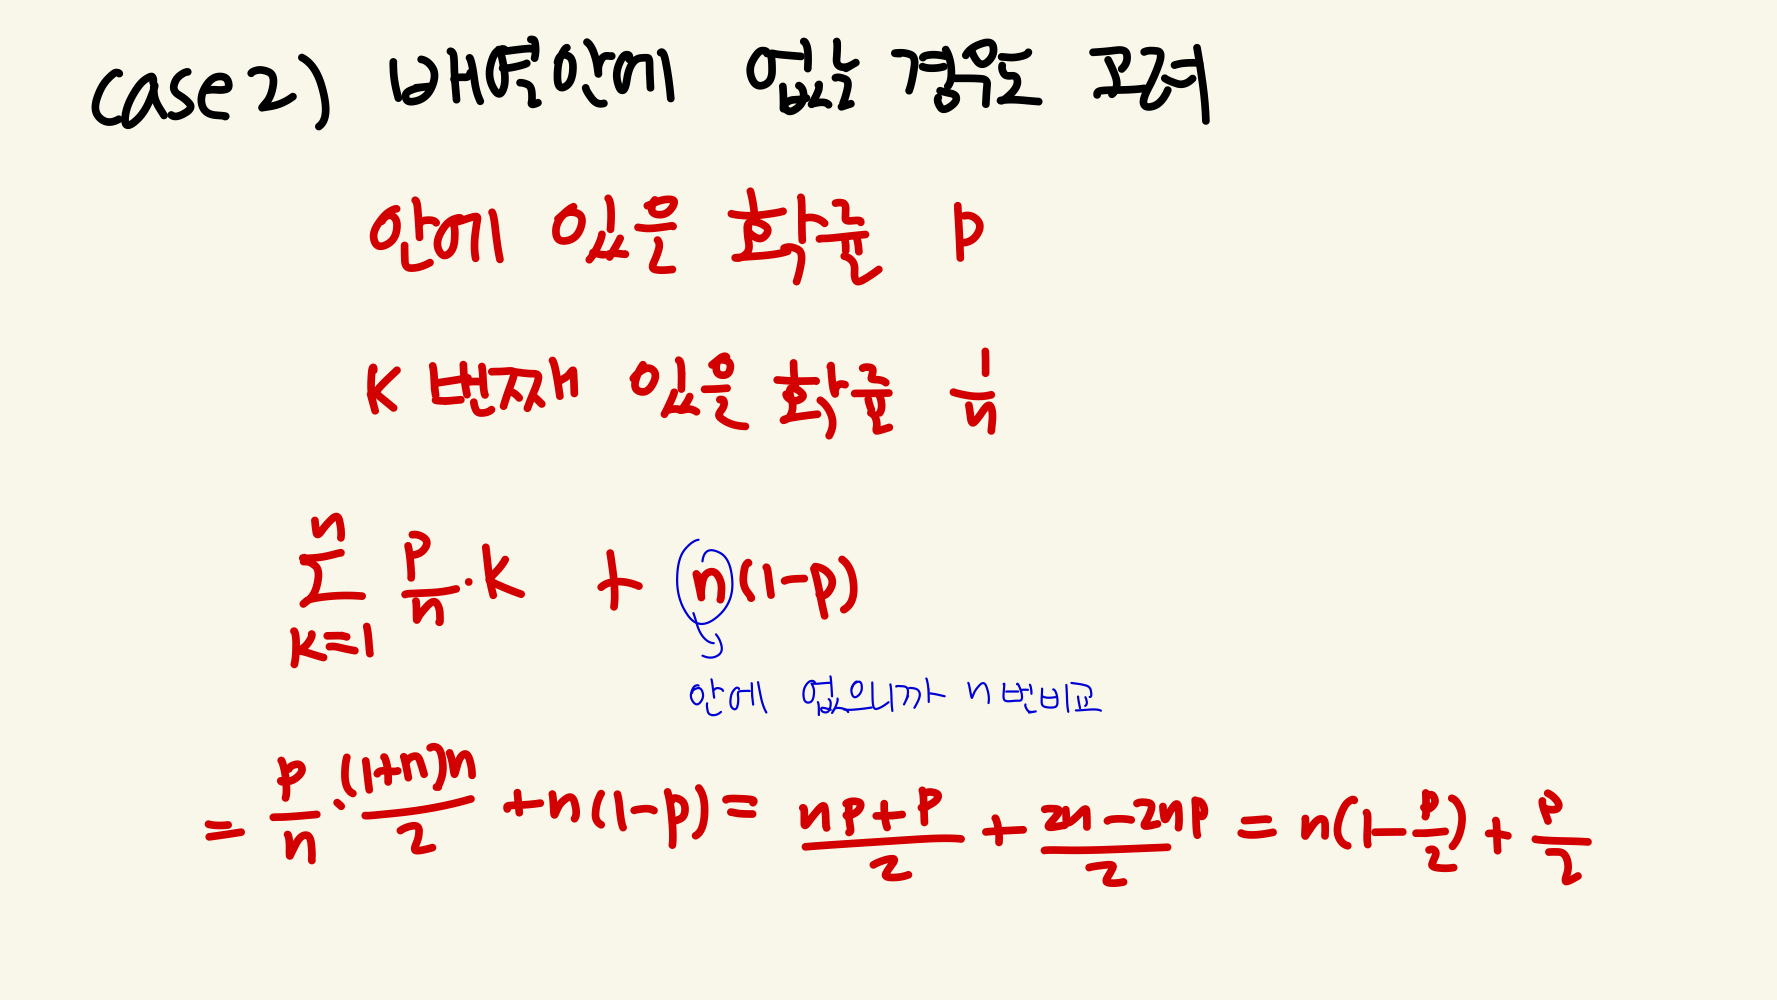 case 2) 배열안에 없을 경우도 고려
안에 있을 확률 p
k 번째 있을 확률 1/n
∑_{k=1}^{n} p/n · k + n(1-p)
안에 없으니까 n번비교
= p/n · (1+n)n/2 + n(1-p) = (np+p)/2 + (2n-2np)/2 = n(1-p/2) + p/2